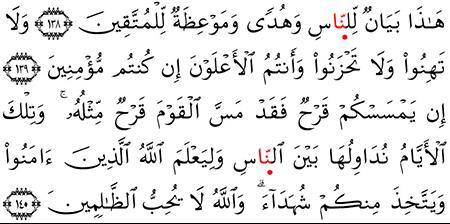 هَـٰذَا بَيَانٌ لِّلنَّاسِ وَهُدًى وَمَوْعِظَةٌ لِّلْمُتَّقِينَ ﴿١٣٨﴾ وَلَا
تَهِنُوا۟ وَلَا تَحْزَنُوا۟ وَأَنتُمُ ٱلْأَعْلَوْنَ إِن كُنتُم مُّؤْمِنِينَ ﴿١٣٩﴾
إِن يَمْسَسْكُمْ قَرْحٌ فَقَدْ مَسَّ ٱلْقَوْمَ قَرْحٌ مِّثْلُهُۥ ۚ وَتِلْكَ
ٱلْأَيَّامُ نُدَاوِلُهَا بَيْنَ ٱلنَّاسِ وَلِيَعْلَمَ ٱللَّهُ ٱلَّذِينَ ءَامَنُوا۟
وَيَتَّخِذَ مِنكُمْ شُهَدَآءَ ۗ وَٱللَّهُ لَا يُحِبُّ ٱلظَّـٰلِمِينَ ﴿١٤٠﴾